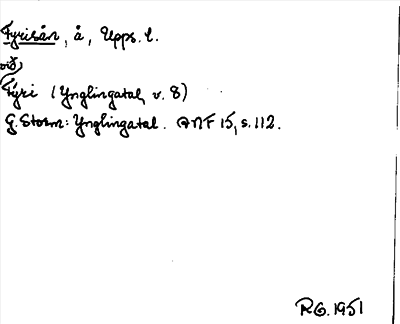 Fyrisån, å, Upps. l.
við
Fýri (Ynglingatal, v. 8)
G. Storm: Ynglingatal. ANF 15, s. 112.
RG. 1951